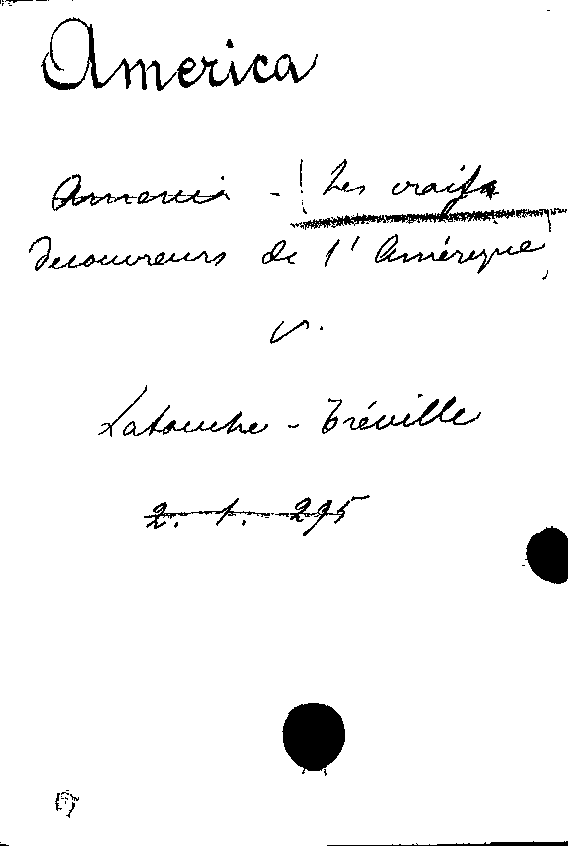 America
America - (Les vrais
decouvreurs de l'Amérique)
v.
Latouche - Tréville
2. 1. 295